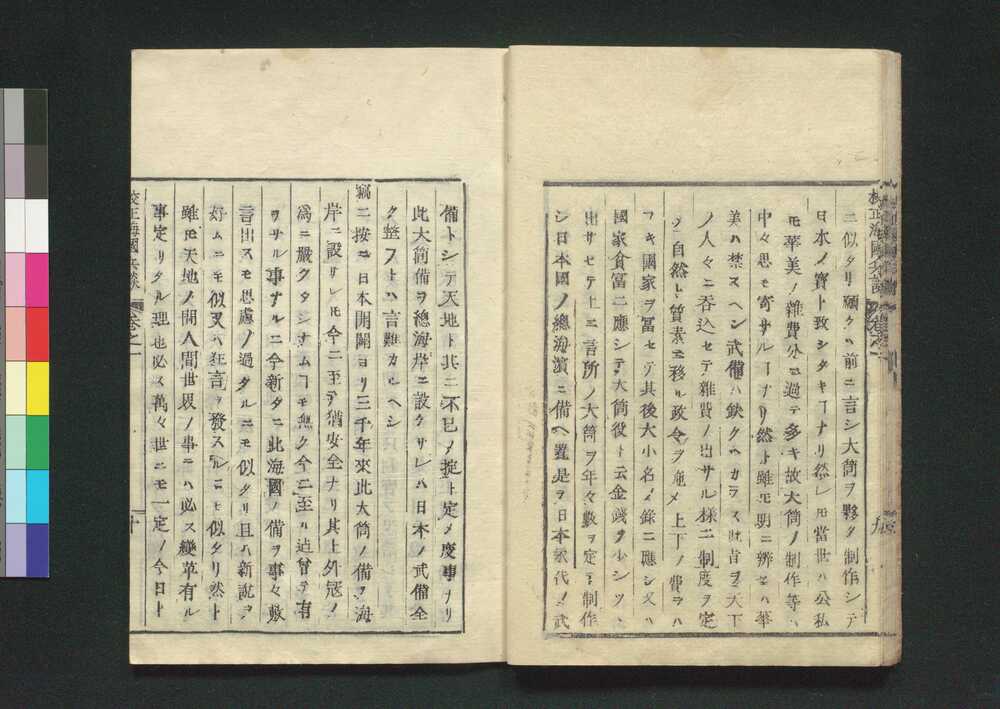 校正海國兵談 卷之一 九
ニ似タリ願クハ前ニ言シ大筒ヲ夥ク制作シテ
日本ノ寳ト致シタキヿナリ然レ𪜈當世ハ公私
𪜈華美ノ雜費分ニ過テ多キ故大筒ノ制作等ハ
中々思モ寄サルヿナリ然ト雖𪜈明ニ辨セハ華
美ハ禁スヘシ武備ハ缺クヘカラス此旨ヲ天下
ノ人々ニ吞込セテ雜費ノ出サル樣ニ制度ヲ定
自然ト質素ニ移ル政令ヲ施メ上下ノ費ヲハ
フキ國家ヲ冨セテ其後大小名ノ錄ニ應シ又ハ
國家貧冨ニ應シテ大筒役ト云金錢ヲ少シツヽ
出サセテ上ニ言所ノ大筒ヲ年々數ヲ定テ制作
シ日本國ノ總海濱ニ備ヘ置是ヲ日本永代ノ武
備トシテ天地ト共ニ不巳ノ掟ト定メ度事ナリ
此大筒備ヲ總海岸ニ設ケサレハ日本ノ武備全
ク整フトハ言難カルヘシ
竊ニ按ニ日本開闢ヨリ三千年來此大筒ノ備ヲ海
岸ニ設サレ𪜈今ニ至テ猶安全ナリ其上外冦ノ
爲ニ嚴クタシナムヿモ無ク今ニ至ル迠曾テ有
ヲサル事ナルニ今新タニ此海國ノ備ヲ事々敷
言出スモ思慮ノ過タルニモ似タリ且ハ新説ヲ
好ムニモ似又ハ狂言ヲ發スルニモ似タリ然ト
雖𪜈天地ノ間人間世界ノ事ニハ必ス變革有ル
事定リタル理也必ス萬々世ニモ一定ノ今日ト
校正海國兵談 卷之一 十